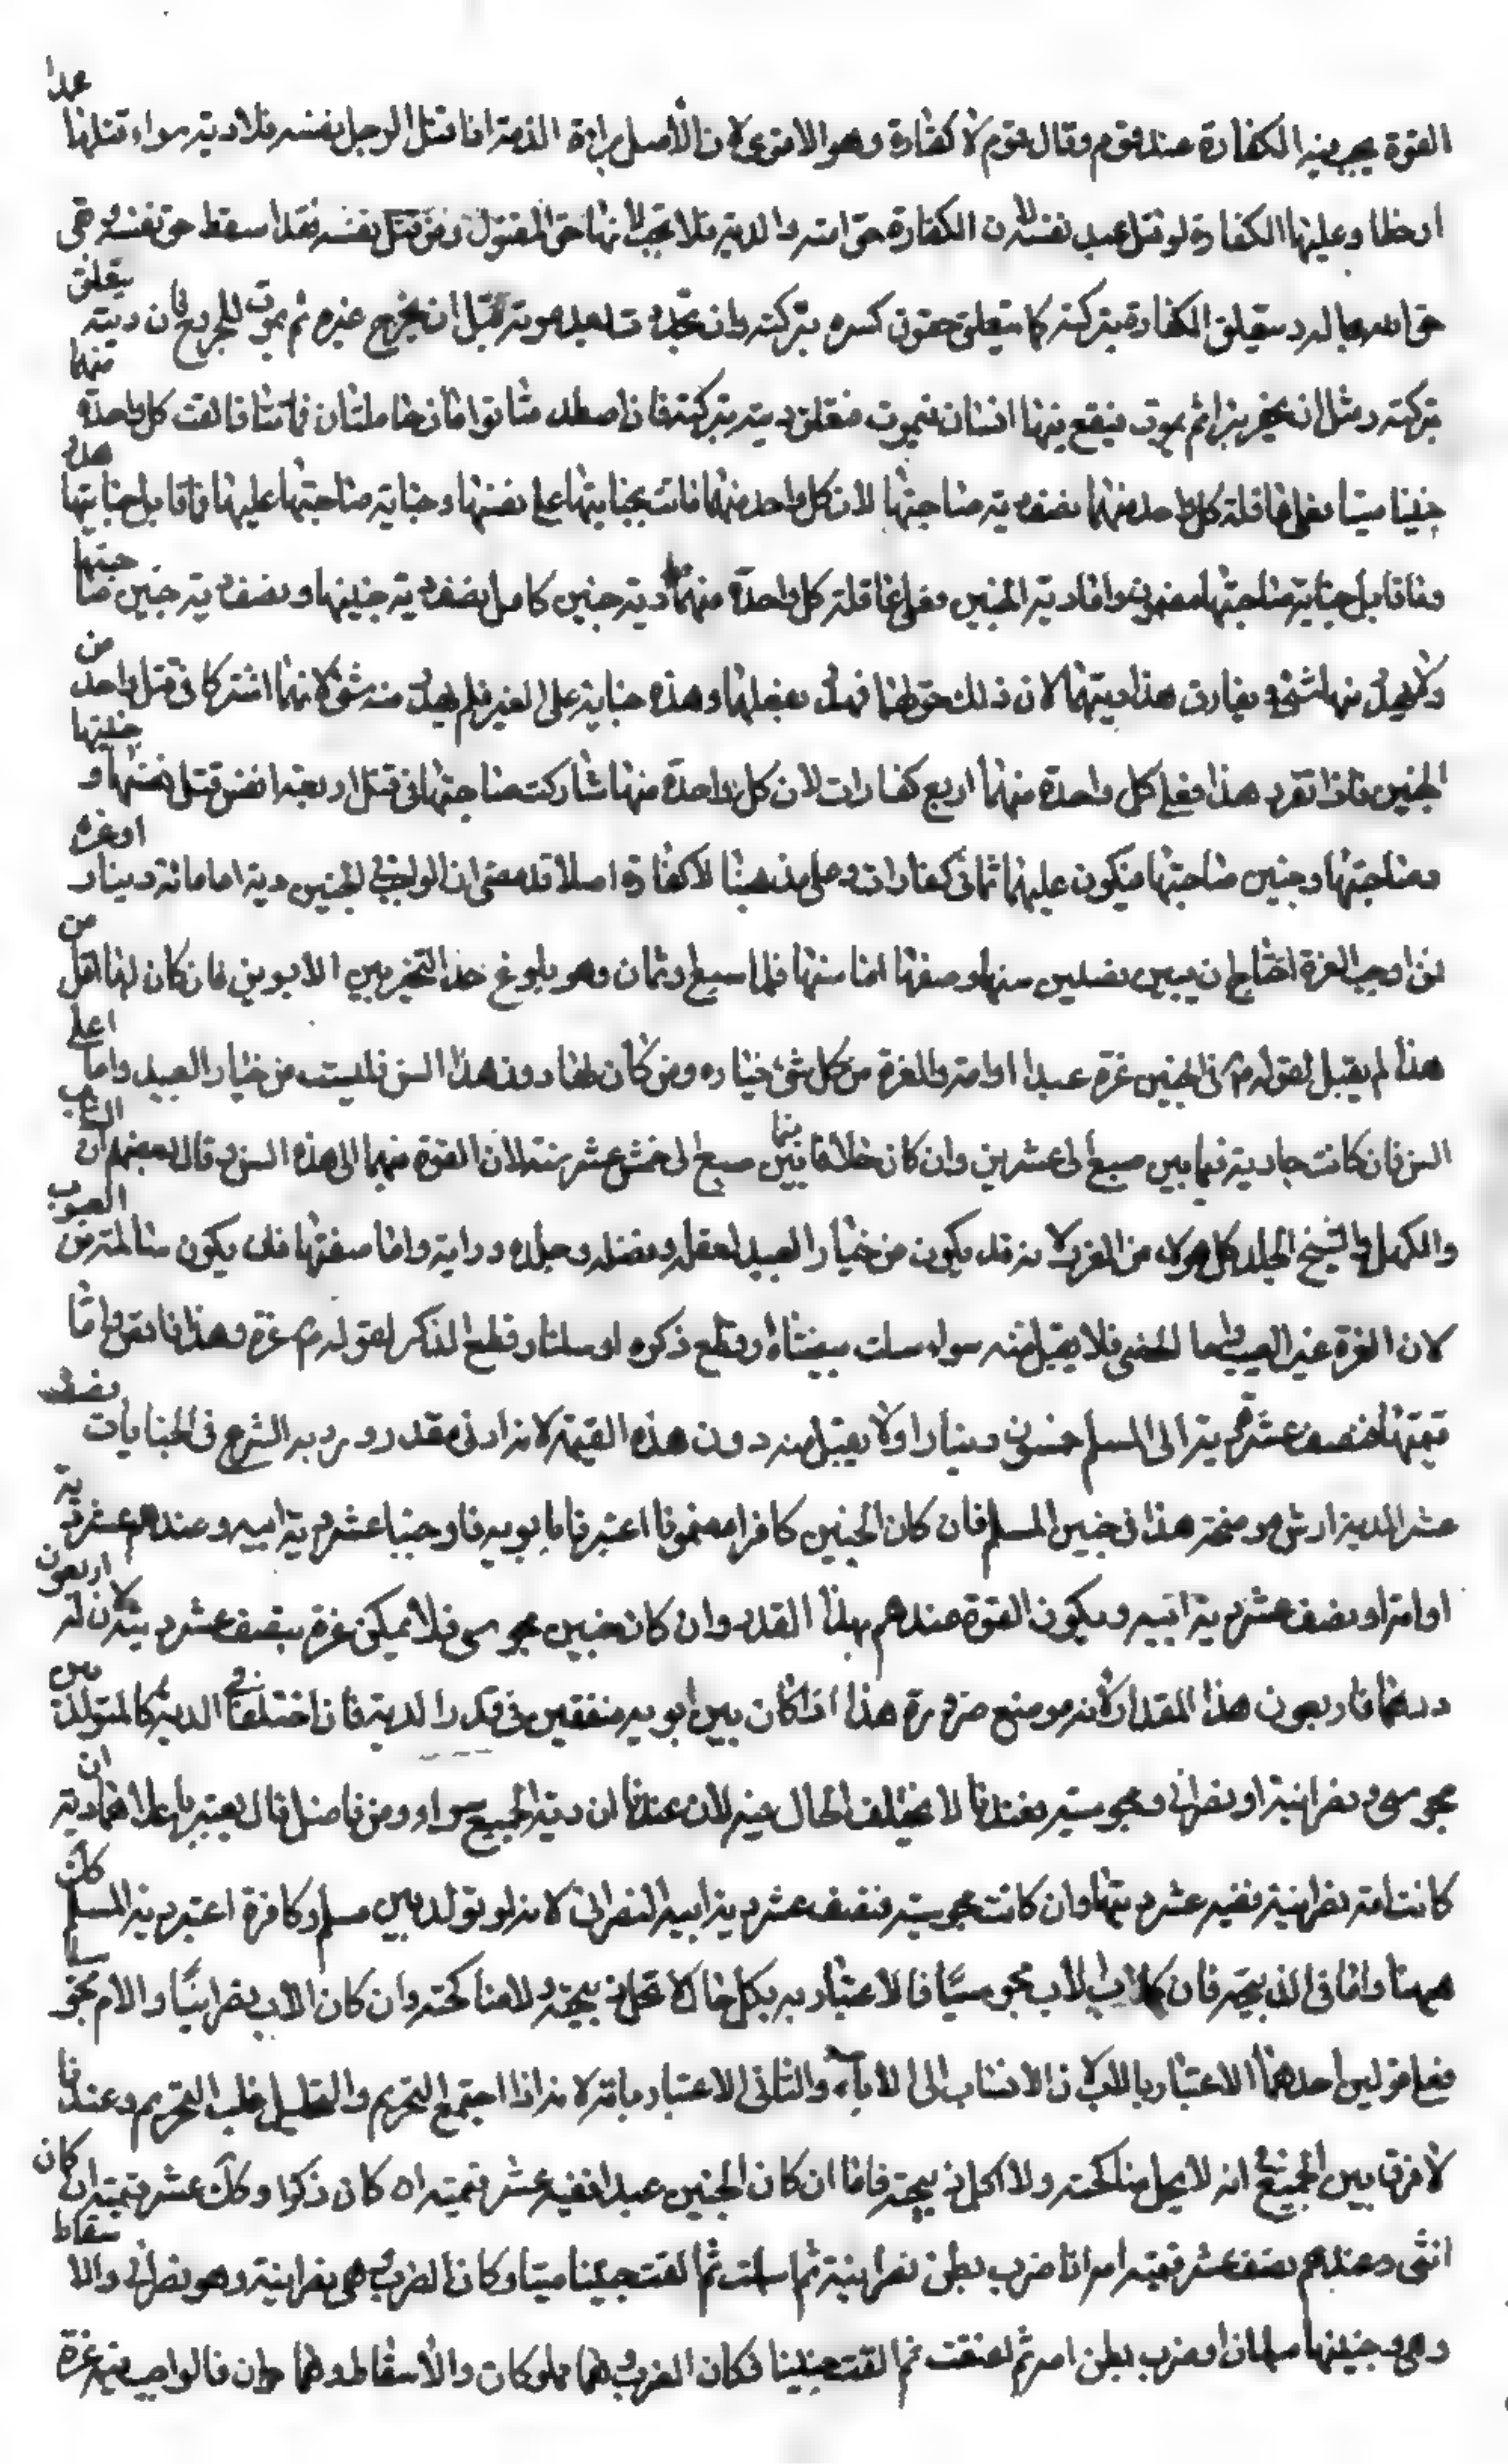 القود يجب فيه الكفارة عند قوم وقال قوم لا كفارة وهو الاقوى لان الأصل براءة الذمة اذا قتل الرجل نفسه فلا دية سواء قتلها عمدا
او خطا وعليها الكفارة لو قتل عبد نفسه لان الكفارة حق الله والدية فلا تجب لأنها حق المقتول ومن قتل نفسه فقد اسقط حق نفسه بقى
حق الله يتعلق الكفارة بتركته كما يتعلق حقوق بتركته وان تجدد بعد موته قبل ان يخرج غيره ثم يموت الجروح فان ديته يتعلق
بتركته ومثل ان يحفر بئرا ثم يموت فيقع فيها انسان فيموت فتعلق ديته بتركته فان اصطدمتا فماتتا فالقت كل واحدة منهما
جنينا ميتا فعلى عاقلة كل واحد منهما نصف دية صاحبتها لان كل واحد منهما ماتت بجنايتها على نفسها وجناية صاحبتها عليها فما قابل جنايتها هدر
وما قابل جناية صاحبتها مضمون واما دية الجنين فعلى عاقلة كل واحدة منهما دية جنين كامل نصف دية جنينها ونصف دية جنين صاحبتها
ولا يهدر منها شئ ويفارق هذا ديتهما لان ذلك حق لهما فهدر بفعلها وهذه جناية على الغير فلم يهدر منه شئ لانهما اشتركا في قتل واحد من
الجنين فاذا تقرر هذا فعلى كل واحدة منهما اربع كفارات لان كل واحدة منهما شاركت صاحبتها في قتل اربعة انفس قتل نفسها وجنينها
وصاحبتها وجنين صاحبتها فيكون عليهما ثماني كفارات وعلى مذهبنا لا كفارة اصلا قد مضى ان الواجب في الجنين دية اما مائة دينار او غرة
فمن اوجب الغرة احتاج ان يبين فصلين سنها وصفتها اما سنها فلها سبع او ثمان وهو بلوغ حد التخيير بين الابوين فان كان لها اقل من
هذا لم يقبل لقوله في الجنين غرة عبد او امة والغرة من كل شئ خياره ومن كان لها دون هذا السن فليست من خيار العبيد واما اعلى
السن فان كانت جارية فيما بين سبع الى عشرين وان كان غلاما فيما بين سبع الى خمس عشر سنة لان الغرة منهما الى هذه السن وقال بعضهم ان الشاب
والكهل والشيخ الجلد كل هولاء من الغرة لانه قد يكون من خيار العبيد لعقله وفضله وجلده ودرايته واما صفتها فان يكون سالمة من العيوب
لان الغرة غير المعيب واما الخصي فلا يقبل منه سواء سلت بيضتاه وقطع ذكره او سلتا وقطع الذكر لقوله غرة وهذا ناقص واما
قيمتها فنصف عشر دية الى المسلم خمسون دينارا ولا يقبل منه دون هذه القيمة لانه ادنى مقدر ورد به الشرع في الجنايات نصف
عشر الدية ارش موضحة هذا في جنين المسلم فان كان الجنين كافرا مضمونا اعتبرناه بابويه فاوجبنا عشر دية ابيه وعندهم عشر دية
او امه او نصف عشر دية ابيه ويكون القود عندهم بهذا القدر وان كان جنين مجوسى فلا يمكن غرة بنصف عشر دية لان له اربعون
درهما فاربعون هذا المقدار لانه موضع ضرورة هذا اذا كان بين ابويه متفقين في قدر الدية فان اختلفا في الدية كالمتولد بين
مجوسي ونصرانية او نصراني ومجوسية فعندنا لا يختلف الحال فيه لان عندنا ان دية الجميع سواء ومن فاضل قال يعتبر باعلاهما دية ان
كانت امه نصرانية ففيه عشر ديتها وان كانت مجوسية فنصف عشر دية ابيه النصراني لانه لو تولد بين مسلم وكافرة اعتبر دية المسلم كك
ههنا واما في الذبيحة فان كان الاب مجوسيا فالاعتبار به بكل حال لا تحل ذبيحته ولا مناكحته وان كان الاب نصرانيا والام مجوسية
فعلى قولين احدهما الاعتبار بالاب لان الانتساب الى الآباء والثاني الاعتبار بامه لانه اذا اجتمع التحريم والتحليل غلب التحريم وعندنا
لا فرق بين الجميع في انه لا يحل مناكحته ولا اكل ذبيحته فاما ان كان الجنين عبدا ففيه عشر قيمته ان كان ذكرا وكك عشر قيمته ان كان
انثى وعندهم نصف عشر قيمة امه اذا ضرب بطن نصرانية ثم اسلمت ثم القت جنينا ميتا وكان الضرب هي نصرانية وهو نصراني والاسقاط
وهي وجنينها مسلمان او ضرب بطن امة ثم اعتقت ثم القت جنينا فكان الضرب وهما مملوكان والأسقاط وهما حران فالواجب فيه غرة